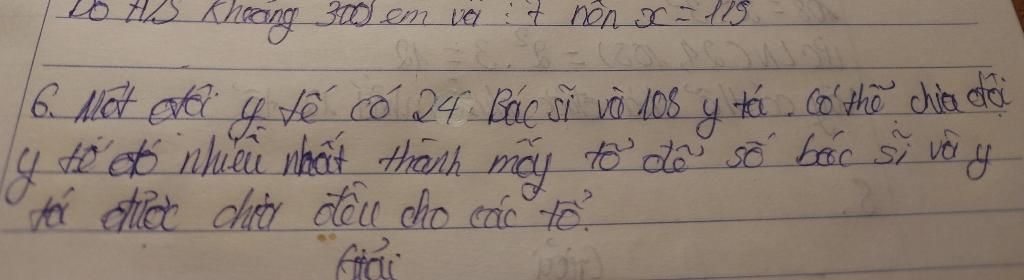 Do H/S khoảng 300 em và : 7 nên x = 119
6. Một đội y tế có 24 Bác sĩ và 108 y tá. Có thể chia đội
y tế đó nhiều nhất thành mấy tổ để số bác sĩ và y
tá được chia đều cho các tổ?
Giải